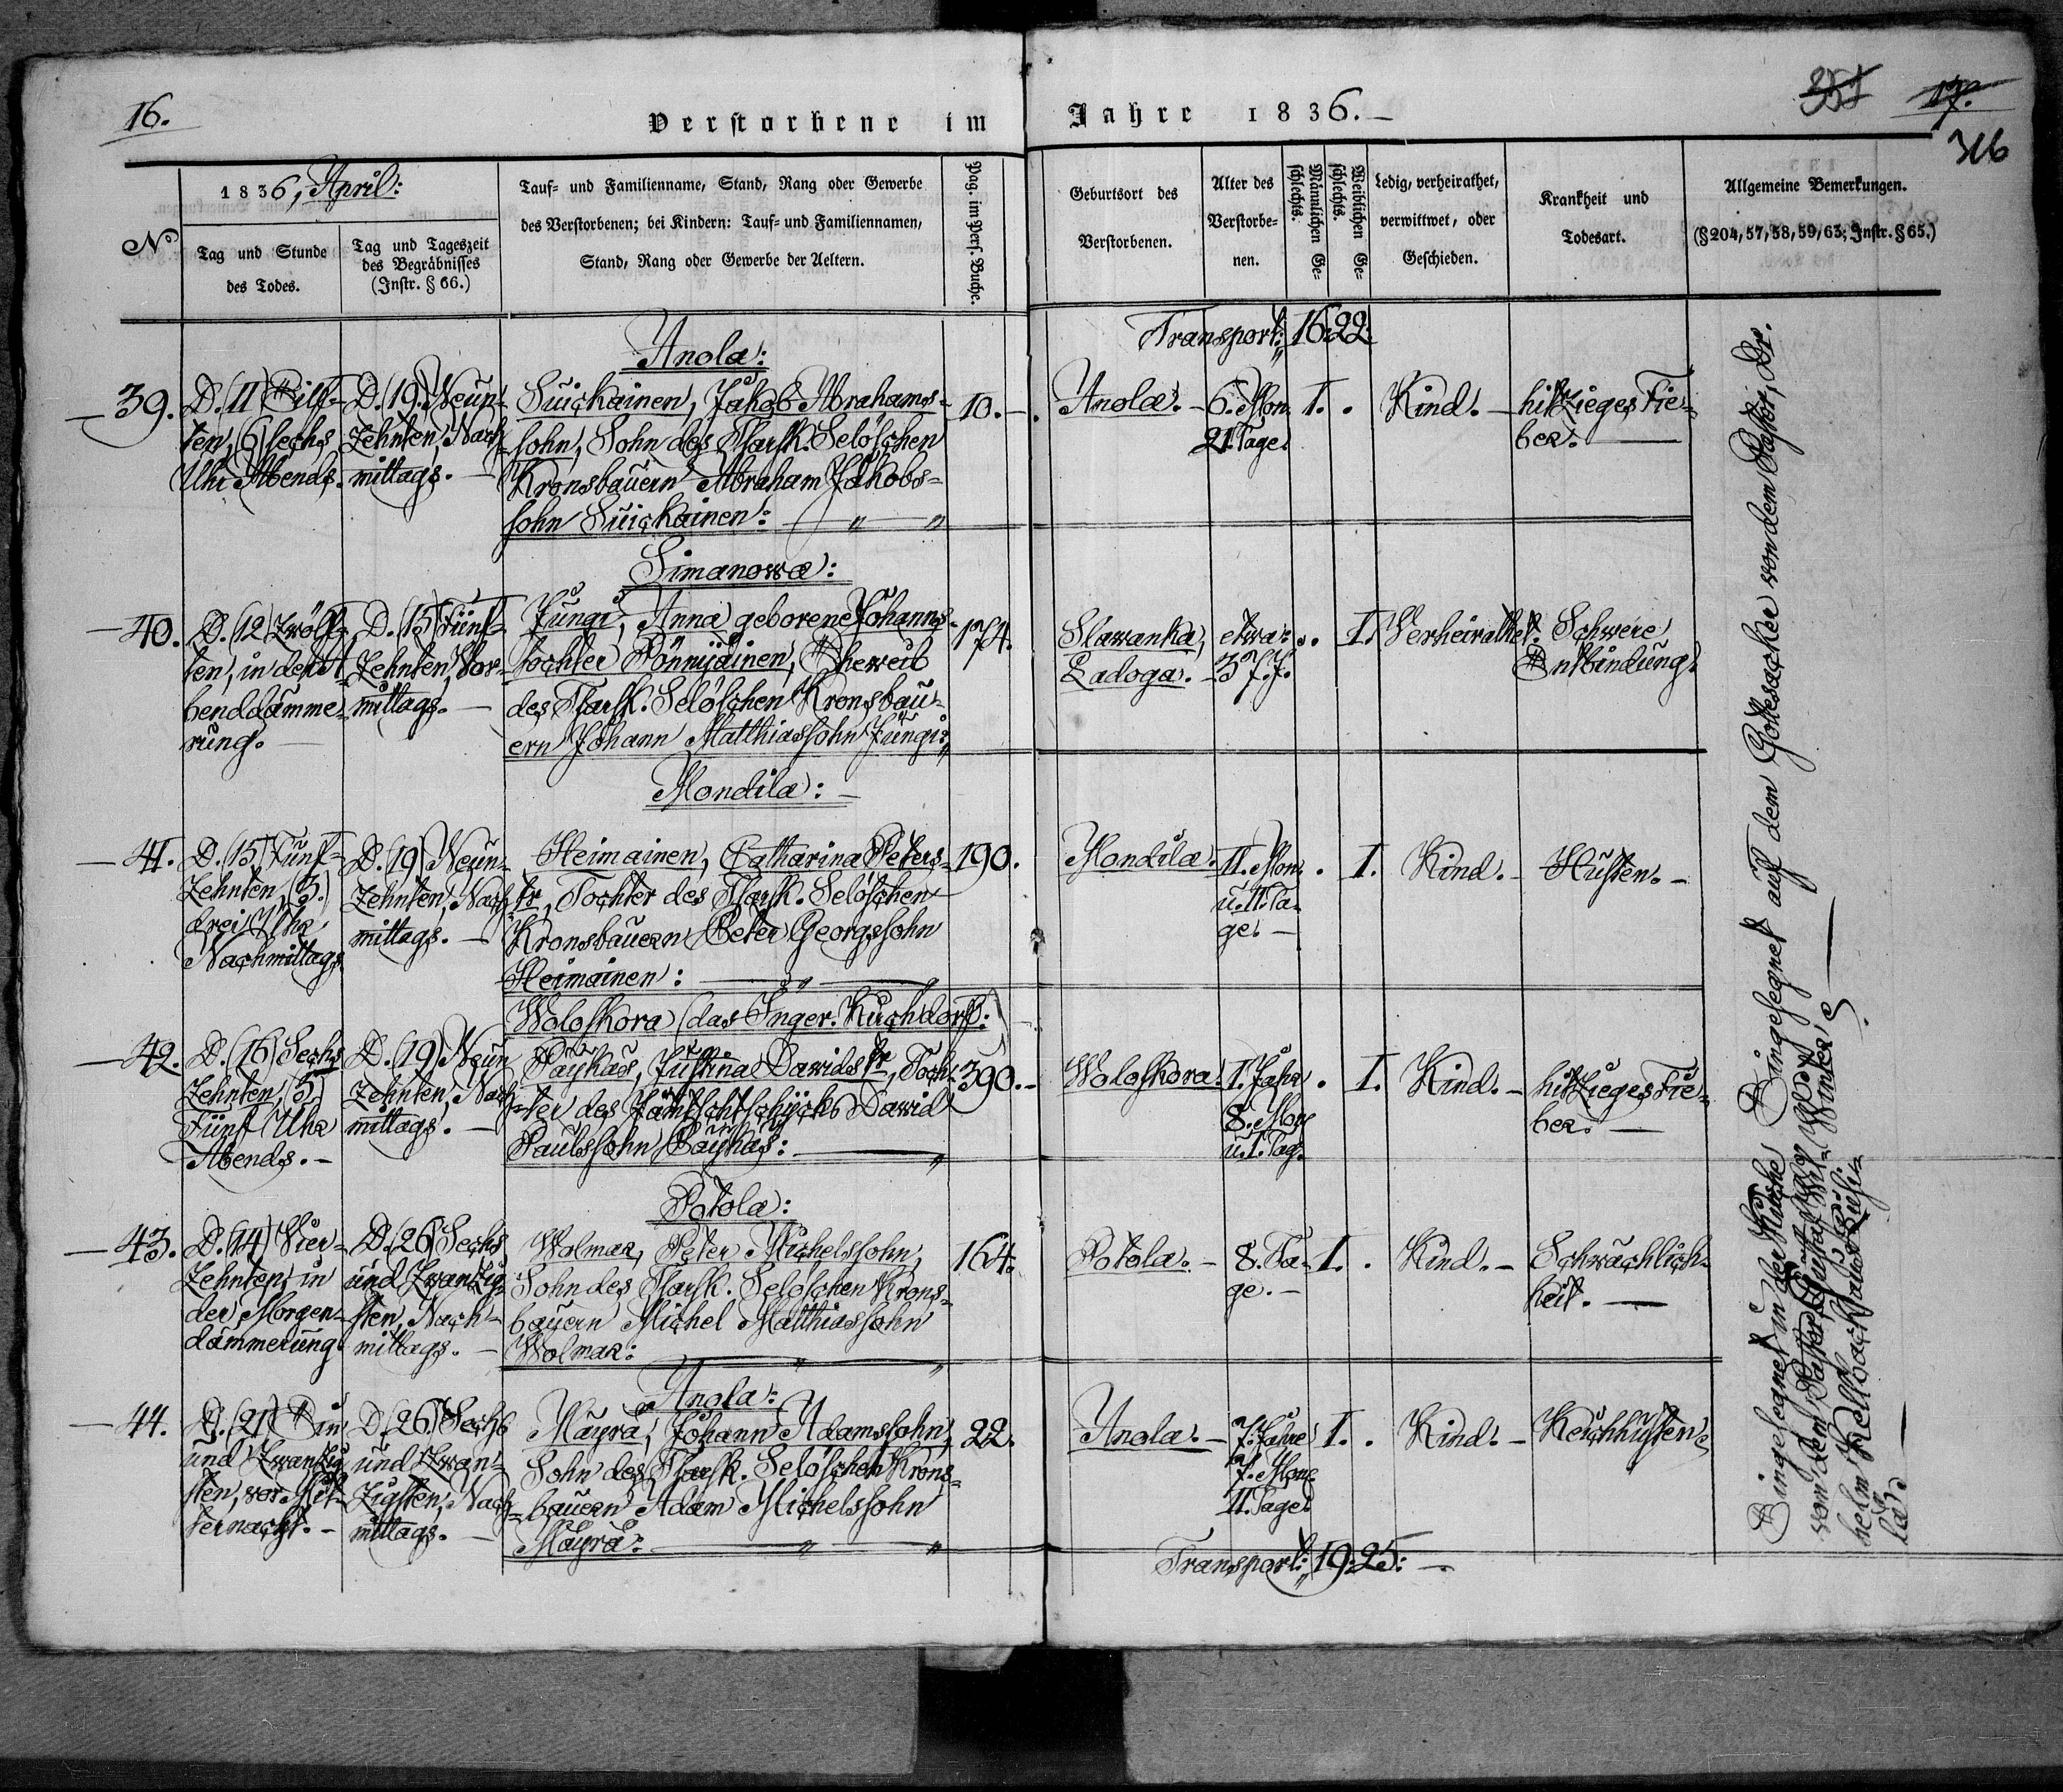 16.
Verstorbene im Jahre 1836.
351 17.
316
No
1836, April:
Tag und Stunde des Todes.
Tag und Tageszeit des Begräbnisses (Instr. § 66.)
Tauf- und Familienname, Stand, Rang oder Gewerbe
des Verstorbenen; bei Kindern: Tauf- und Familiennamen,
Stand, Rang oder Gewerbe der Aeltern.
Pag. im Pers. Buche.
Geburtsort des Verstorbenen.
Alter des Verstorbe-nen.
Männlichen Ge-schlechts.
Weiblichen Ge-schlechts.
Ledig, verheirathet, verwittwet, oder Geschieden.
Krankheit und Todesart.
Allgemeine Bemerkungen.
(§204, 57, 58, 59, 63; Instr. § 65.)
Transport: 16. 22.
Anola:
39.
D. (11) Eilf-
ten, (6) sechs
Uhr Abends.
D. (19.) Neun-
zehnten, Nach-
mittags.
Suickainen, Jakob Abrahams-
sohn, Sohn des Zarsk. Seloschen
Kronsbauern Abraham Jakobs-
sohn Suickainen:
10.
Anola.
6. Mon.
21. Tage.
1.
Kind.
hitzieges Fie-
ber.
Simanowa:
40.
D. (12) Zwölf-
ten, in der A-
benddämme-
rung.
D. (15) Fünf-
zehnten, Vor-
mittags.
Jungi, Anna geborene Johanns-
tochter Eheweib
des Zarsk. Seloschen Kronsbau-
ern Johann Matthiassohn Jungi:
174.
Slawanka,
Ladoga.
etwa
37. J.
1.
Verheirathet.
Schwere
Entbindung.
Mondila:
41.
D. (15) Fünf-
zehnten, (3.)
drei Uhr
Nachmittags
D. (19) Neun-
zehnten, Nach-
mittags.
Heimainen, Catharina Peters-
tr, Tochter des Zarsk. Seloschen
Kronsbauern Peter Georgssohn
Heimainen:
190.
Mondila.
11. Mon.
u. 11. Ta-
ge.
1.
Kind.
Husten.
Woloskora (das Inger. Kirchdorf):
42.
D. (16) Sechs
zehnten, (5)
Fünf Uhr
Abends.
D. (19) Neun
zehnten, Nach-
mittags.
Päykäs, Justina Dawidstr, Toch-
ter des Jämtschtschicks Dawid
Paulssohn Päykäs:
390.
Woloskora.
1. Jahr
8. Mon.
u. 1. Tag.
1.
Kind.
hitzieges Fie-
ber.
Potola:
43.
D. (14) Vier-
zehnten, in
der Morgen-
dämmerung
D. (26) Sechs
und Zwanzig-
sten, Nach-
mittags.
Wolmar, Peter Michelssohn,
Sohn des Zarsk. Seloschen Krons-
bauern Michel Matthiassohn
Wolmar:
164.
Potola.
8. Ta-
ge.
1.
Kind.
Schwächlich-
keit.
Anola:
44.
D. (21) Ein
und Zwanzig
sten, vor Mit-
ternacht.
D. (26) Sechs
und Zwan-
zigsten, Nach-
mittags.
Mäyrä, Johann Adamssohn,
Sohn des Zarsk. Seloschen Krons-
bauern Adam Michelssohn
Mäyrä:
22.
Anola.
7. Jahre
7. Mon.
11. Tage.
1.
Kind.
Keichhusten.
Transport: 19. 25.
Eingesegnet in der Kirche Eingesegnet auf dem Gottesacker von dem Pastor, Dr.
von dem Pastor, Gustav